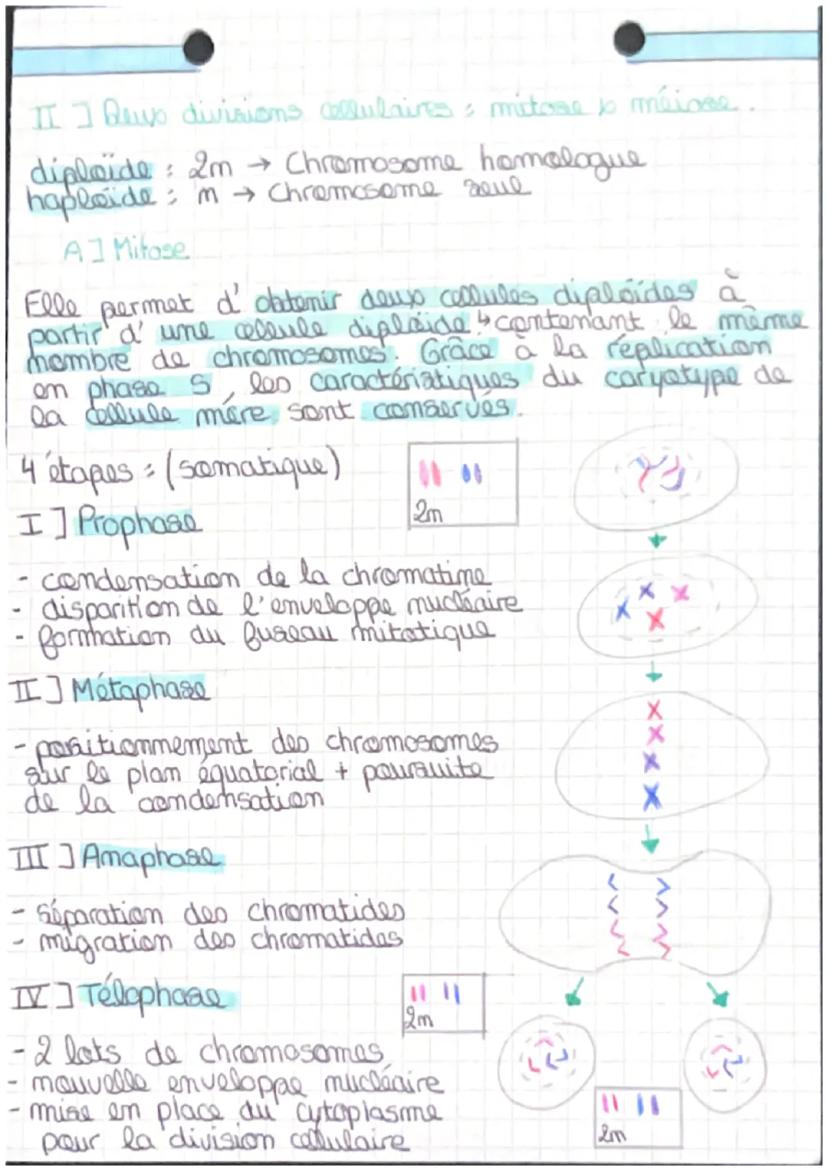 II ] Deux divisions cellulaires : mitose & méiose.
diploïde : 2n → Chromosome homologue
haploïde : n → Chromosome seul
A ] Mitose
Elle permet d'obtenir deux cellules diploïdes à
partir d'une cellule diploïde ↳ contenant le même
nombre de chromosomes. Grâce à la réplication
en phase S, les caractéristiques du caryotype de
la cellule mère sont conservés.
4 étapes : (somatique)
2n
I ] Prophase
- condensation de la chromatine
- disparition de l'enveloppe nucléaire
- formation du fuseau mitotique
II ] Métaphase
- positionnement des chromosomes
sur le plan équatorial + poursuite
de la condensation
III ] Anaphase
- séparation des chromatides
- migration des chromatides
IV ] Télophase
2n
- 2 lots de chromosomes
- nouvelle enveloppe nucléaire
- mise en place du cytoplasme
pour la division cellulaire
2n